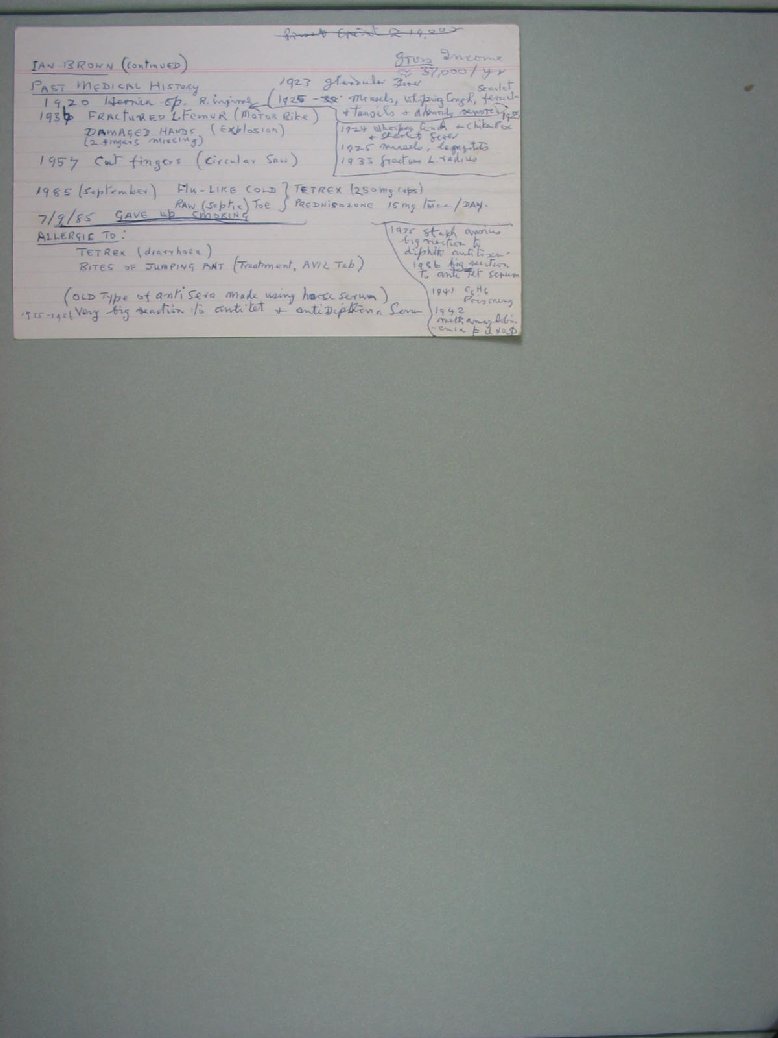 Gross Income
≈ 37,000/yr
IAN BROWN (continued)
PAST MEDICAL HISTORY
1923 glandular fever
1920 Hernia op. R. inguinal
(1925-35 Measles, Whooping Cough, Scarlet fever
+ tonsils + adenoids removed
1936 FRACTURED L FEMUR (MOTOR BIKE)
DAMAGED HANDS (Explosion)
(2 fingers missing)
1924 Whooping Cough + Chicken Pox
+ Scarlet Fever
1925 measles,
1933 fracture L. radius
1957 Cut fingers (Circular Saw)
1985 (September) FLU-LIKE COLD } TETREX (250mg caps)
RAW (Septic) TOE } PREDNISOZONE 15mg twice/DAY.
7/9/85 GAVE UP SMOKING
ALLERGIC TO:
TETREX (diarrhoea)
BITES OF JUMPING ANT (Treatment, AVIL Tab)
(OLD Type of anti Sera made using horse serum)
Very big reaction to antitet + antiDiptheria Serum
1925 Staph
big reaction to
dipth antitoxin
1936 big reaction
to anti tet serum
1941 C6H6
Poisoning
1942